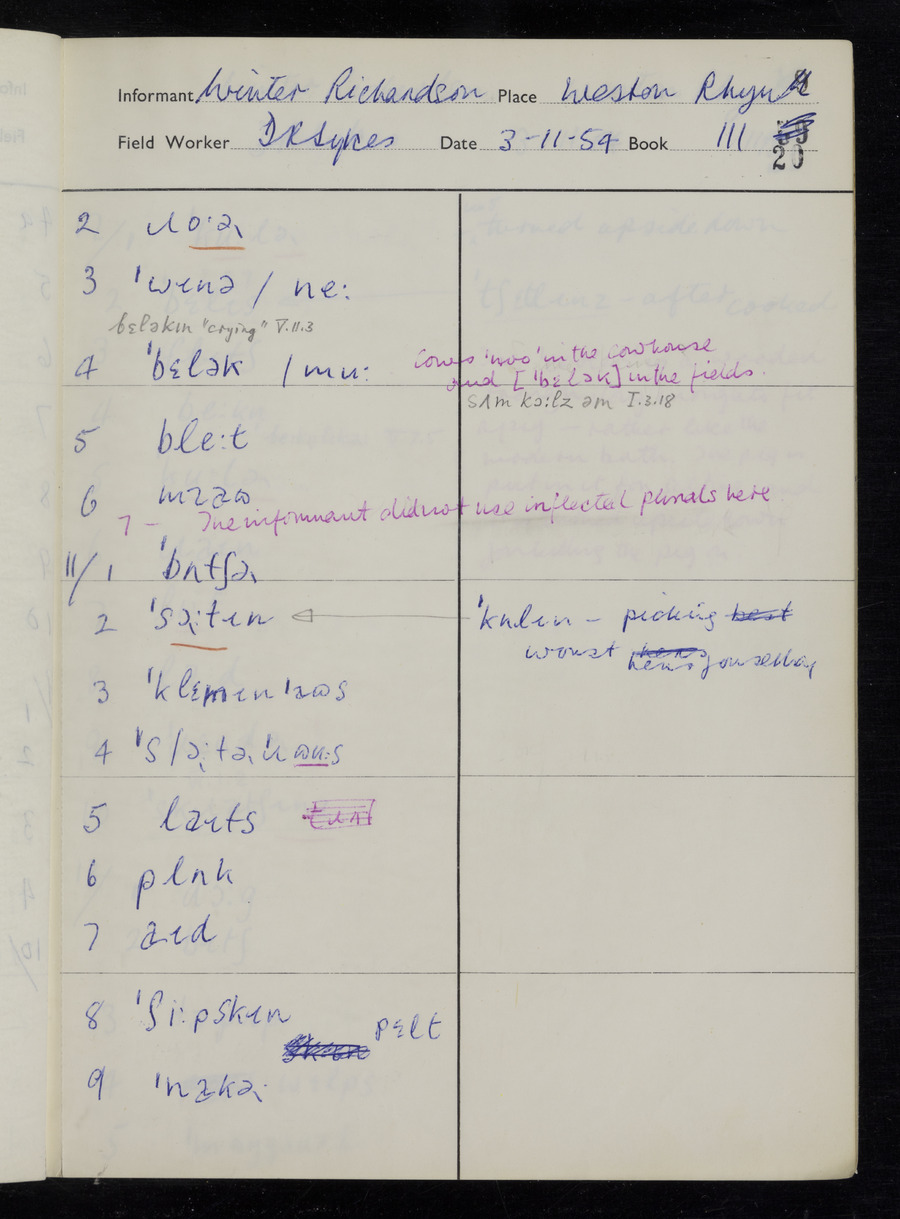 Informant Winter Richardson Place Weston Rhyn
Field Worker DRSykes Date 3-11-54 Book III
20
2 ɹoːə˞
3 ˈwɪnə / neː
bɛləkɪn "crying" V.11.3
4 ˈbɛlək / muː
Cows 'moo' in the cowhouse
and [ˈbɛlək] in the fields.
sʌm kɔːlz əm I.3.18
5 bleːt
6
7 – The informant did not use inflected plurals here
11/1 ˈbʊtʃə˞
2 ˈsə˞ːtɪn
ˈkʊlɪn – picking best
worst hens
hens
3 ˈklɛmɪnˈaʊs
4
5 laɪts
6 plʊk
7 aɪd
8 ˈʃiːpskɪn
pɛlt
9 ˈnakə˞